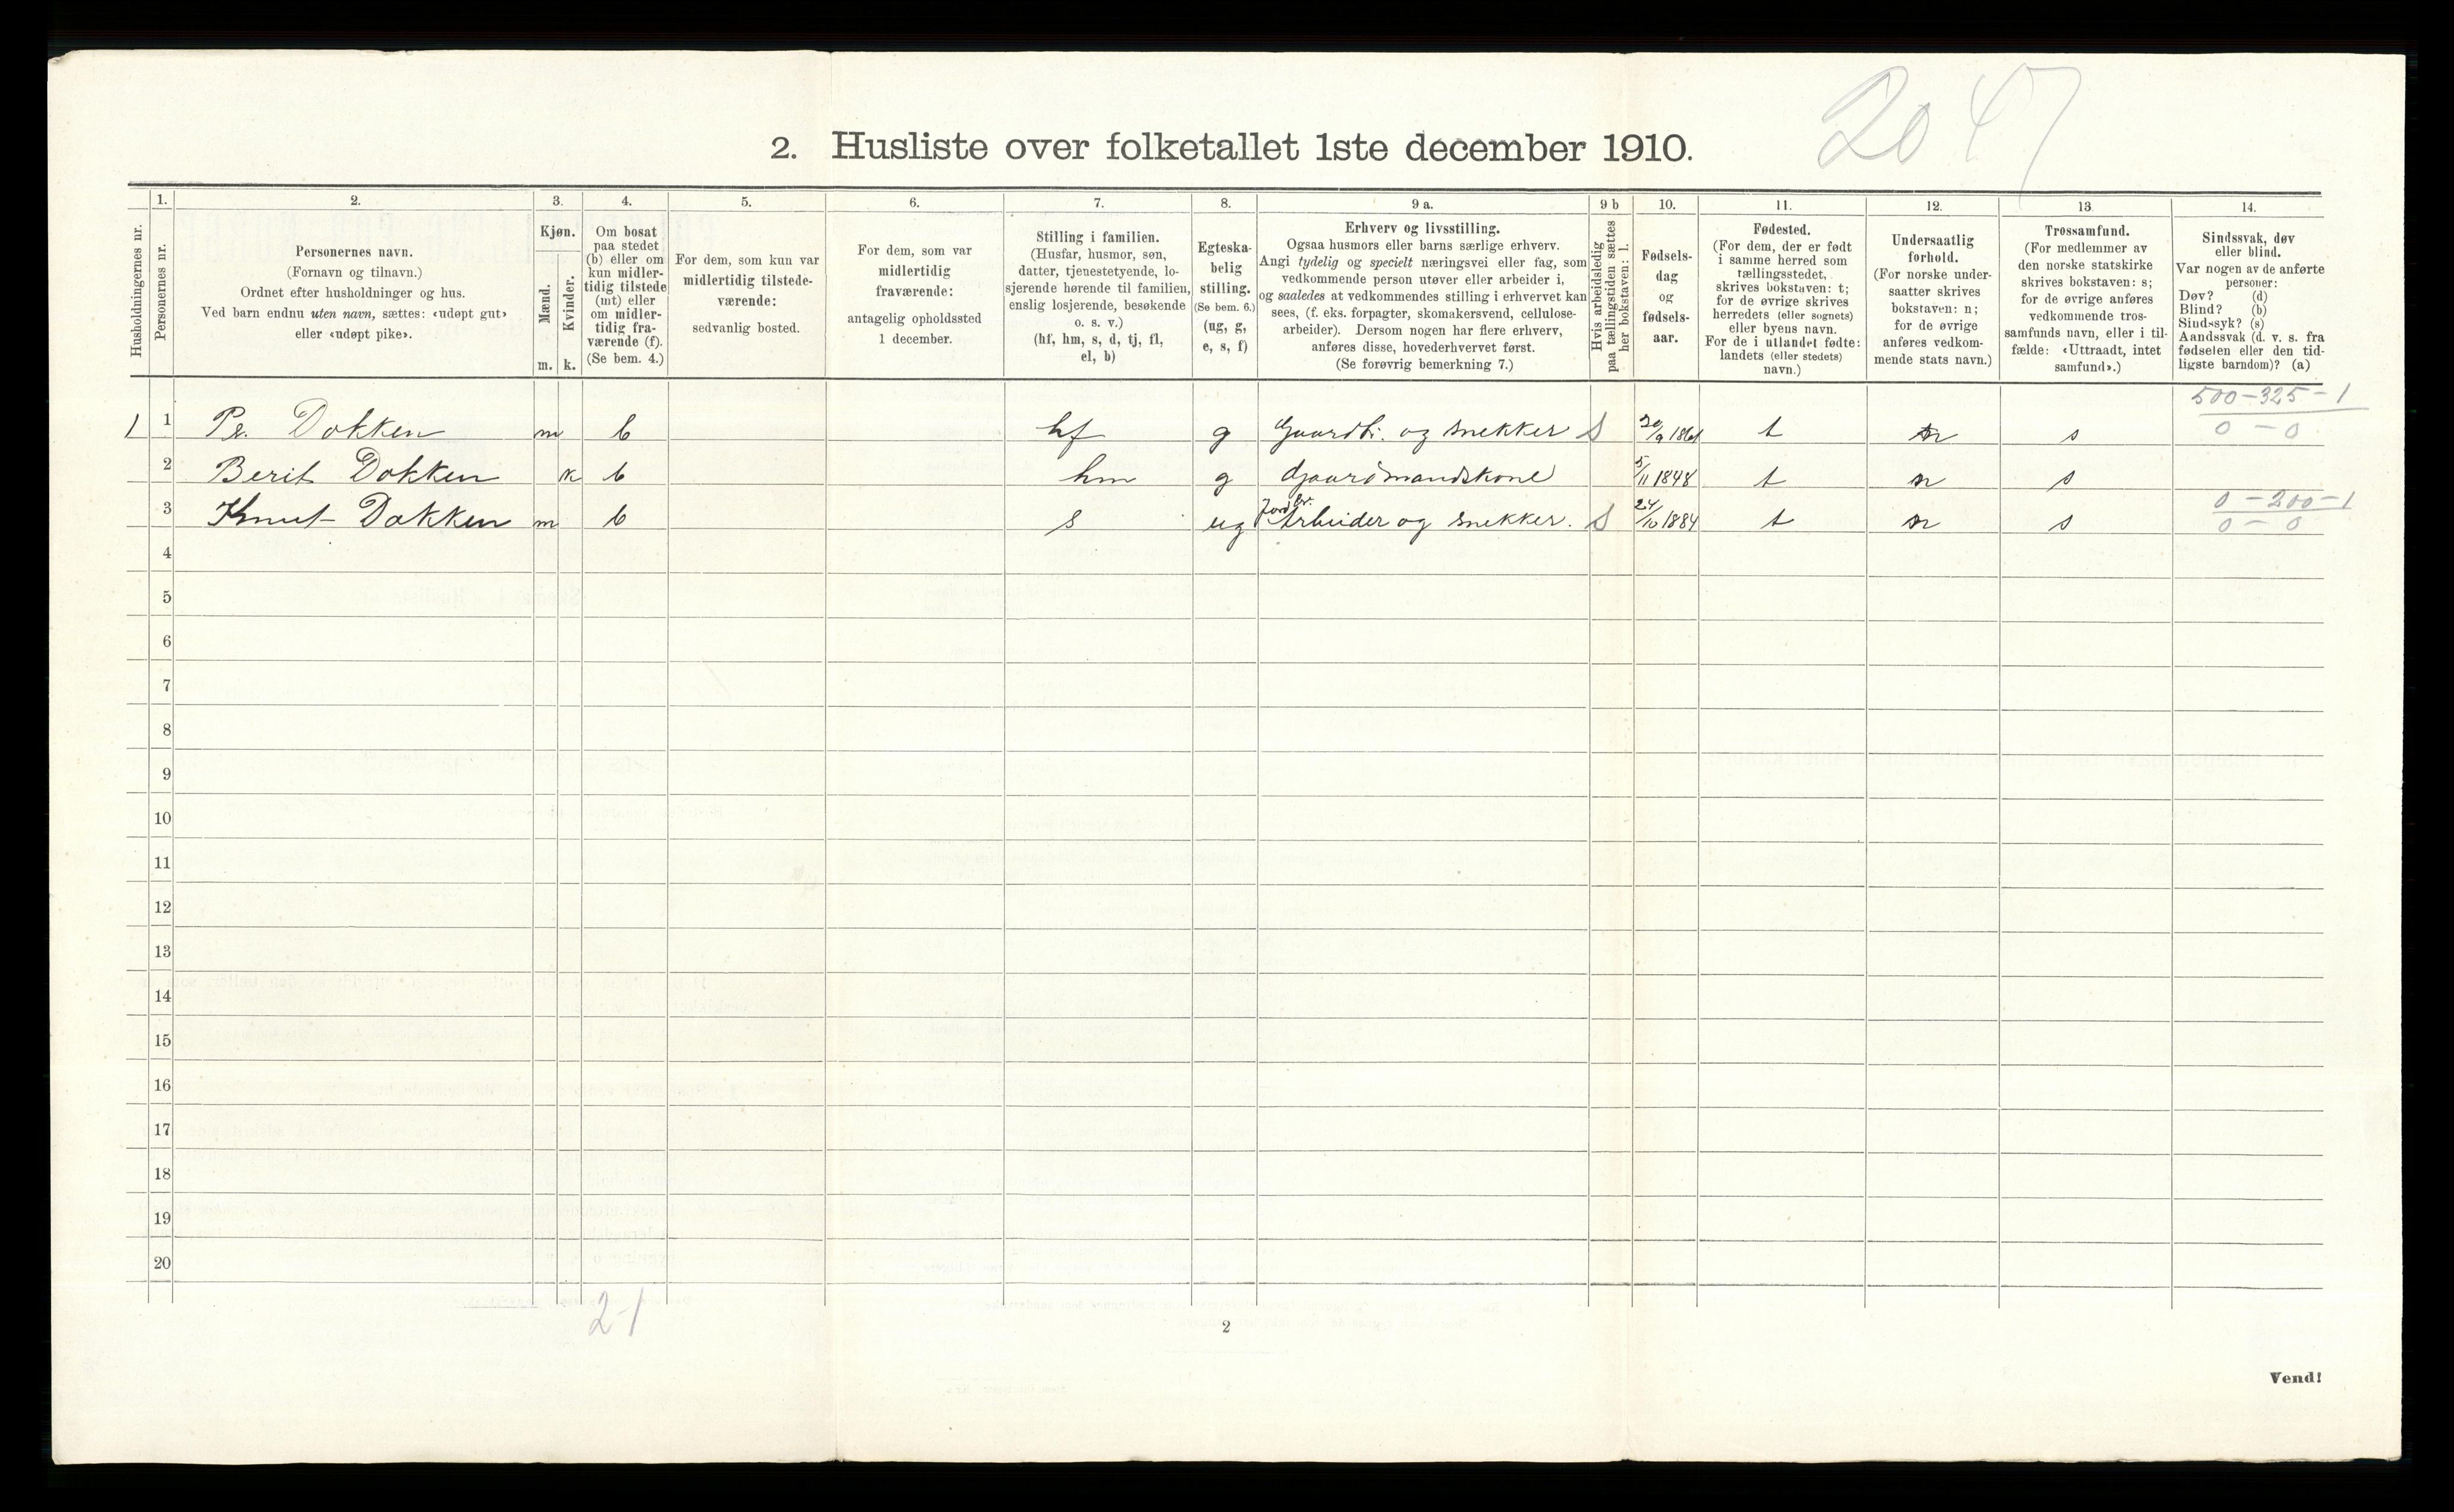 2047
2. Husliste over folketallet 1ste december 1910.
Husholdningernes nr.
1.
Personernes nr.
2.
Personernes navn.
(Fornavn og tilnavn.)
Ordnet efter husholdninger og hus.
Ved barn endnu uten navn, sættes: «udøpt gut»
eller «udøpt pike».
3.
Kjøn.
Mænd.
Kvinder.
m. k.
4.
Om bosat
paa stedet
(b) eller om
kun midler-
tidig tilstede
(mt) eller
om midler-
tidig fra-
værende (f).
(Se bem. 4.)
5.
For dem, som kun var
midlertidig tilstede-
værende:
sedvanlig bosted.
6.
For dem, som var
midlertidig
fraværende:
antagelig opholdssted
1 december.
7.
Stilling i familien.
(Husfar, husmor, søn,
datter, tjenestetyende, lo-
sjerende hørende til familien,
enslig losjerende, besøkende
o. s. v.)
(hf, hm, s, d, tj, fl,
el, b)
8.
Egteska-
belig
stilling.
(Se bem. 6.)
(ug, g,
e, s, f)
9 a.
Erhverv og livsstilling.
Ogsaa husmors eller barns særlige erhverv.
Angi tydelig og specielt næringsvei eller fag, som
vedkommende person utøver eller arbeider i,
og saaledes at vedkommendes stilling i erhvervet kan
sees, (f. eks. forpagter, skomakersvend, cellulose-
arbeider). Dersom nogen har flere erhverv,
anføres disse, hovederhvervet først.
(Se forøvrig bemerkning 7.)
9 b
Hvis arbeidsledig
paa tællingstiden sættes
her bokstaven: l.
10.
Fødsels-
dag
og
fødsels-
aar.
11.
Fødested.
(For dem, der er født
i samme herred som
tællingsstedet,
skrives bokstaven: t;
for de øvrige skrives
herredets (eller sognets)
eller byens navn.
For de i utlandet fødte:
landets (eller stedets)
navn.)
12.
Undersaatlig
forhold.
(For norske under-
saatter skrives
bokstaven: n;
for de øvrige
anføres vedkom-
mende stats navn.)
13.
Trossamfund.
(For medlemmer av
den norske statskirke
skrives bokstaven: s;
for de øvrige anføres
vedkommende tros-
samfunds navn, eller i til-
fælde: «Uttraadt, intet
samfund».)
14.
Sindssvak, døv
eller blind.
Var nogen av de anførte
personer:
Døv? (d)
Blind? (b)
Sindssyk? (s)
Aandssvak (d. v. s. fra
fødselen eller den tid-
ligste barndom)? (a)
500-325-1
1 1 Pr. Dokken m b hf g Gaardbr. og snekker S 20/9 1861 t n s 0 - 0
2 Berit Dokken k b hm g Gaardmandskone 5/11 1848 t n s
0 - 200 - 1
3 Knut Dokken m b s ug Jordbr. Arbeider og snekker. S 24/10 1884 t n s 0 - 0
4
5
6
7
8
9
10
11
12
13
14
15
16
17
18
19
20
2-1
2
Vend!